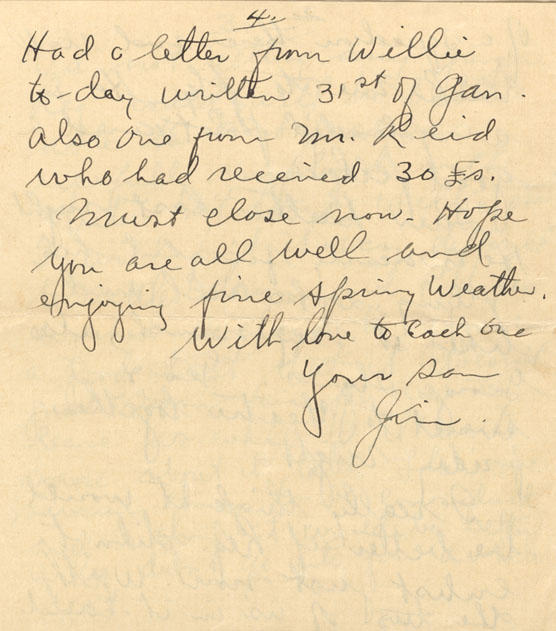 4.
Had a letter from Willie
to-day written 31st of Jan.
also one from Mr. Reid
who had received 30 £s.
Must close now. Hope
you are all well and
enjoying fine spring Weather.
With love to each one
Your son
Jim.